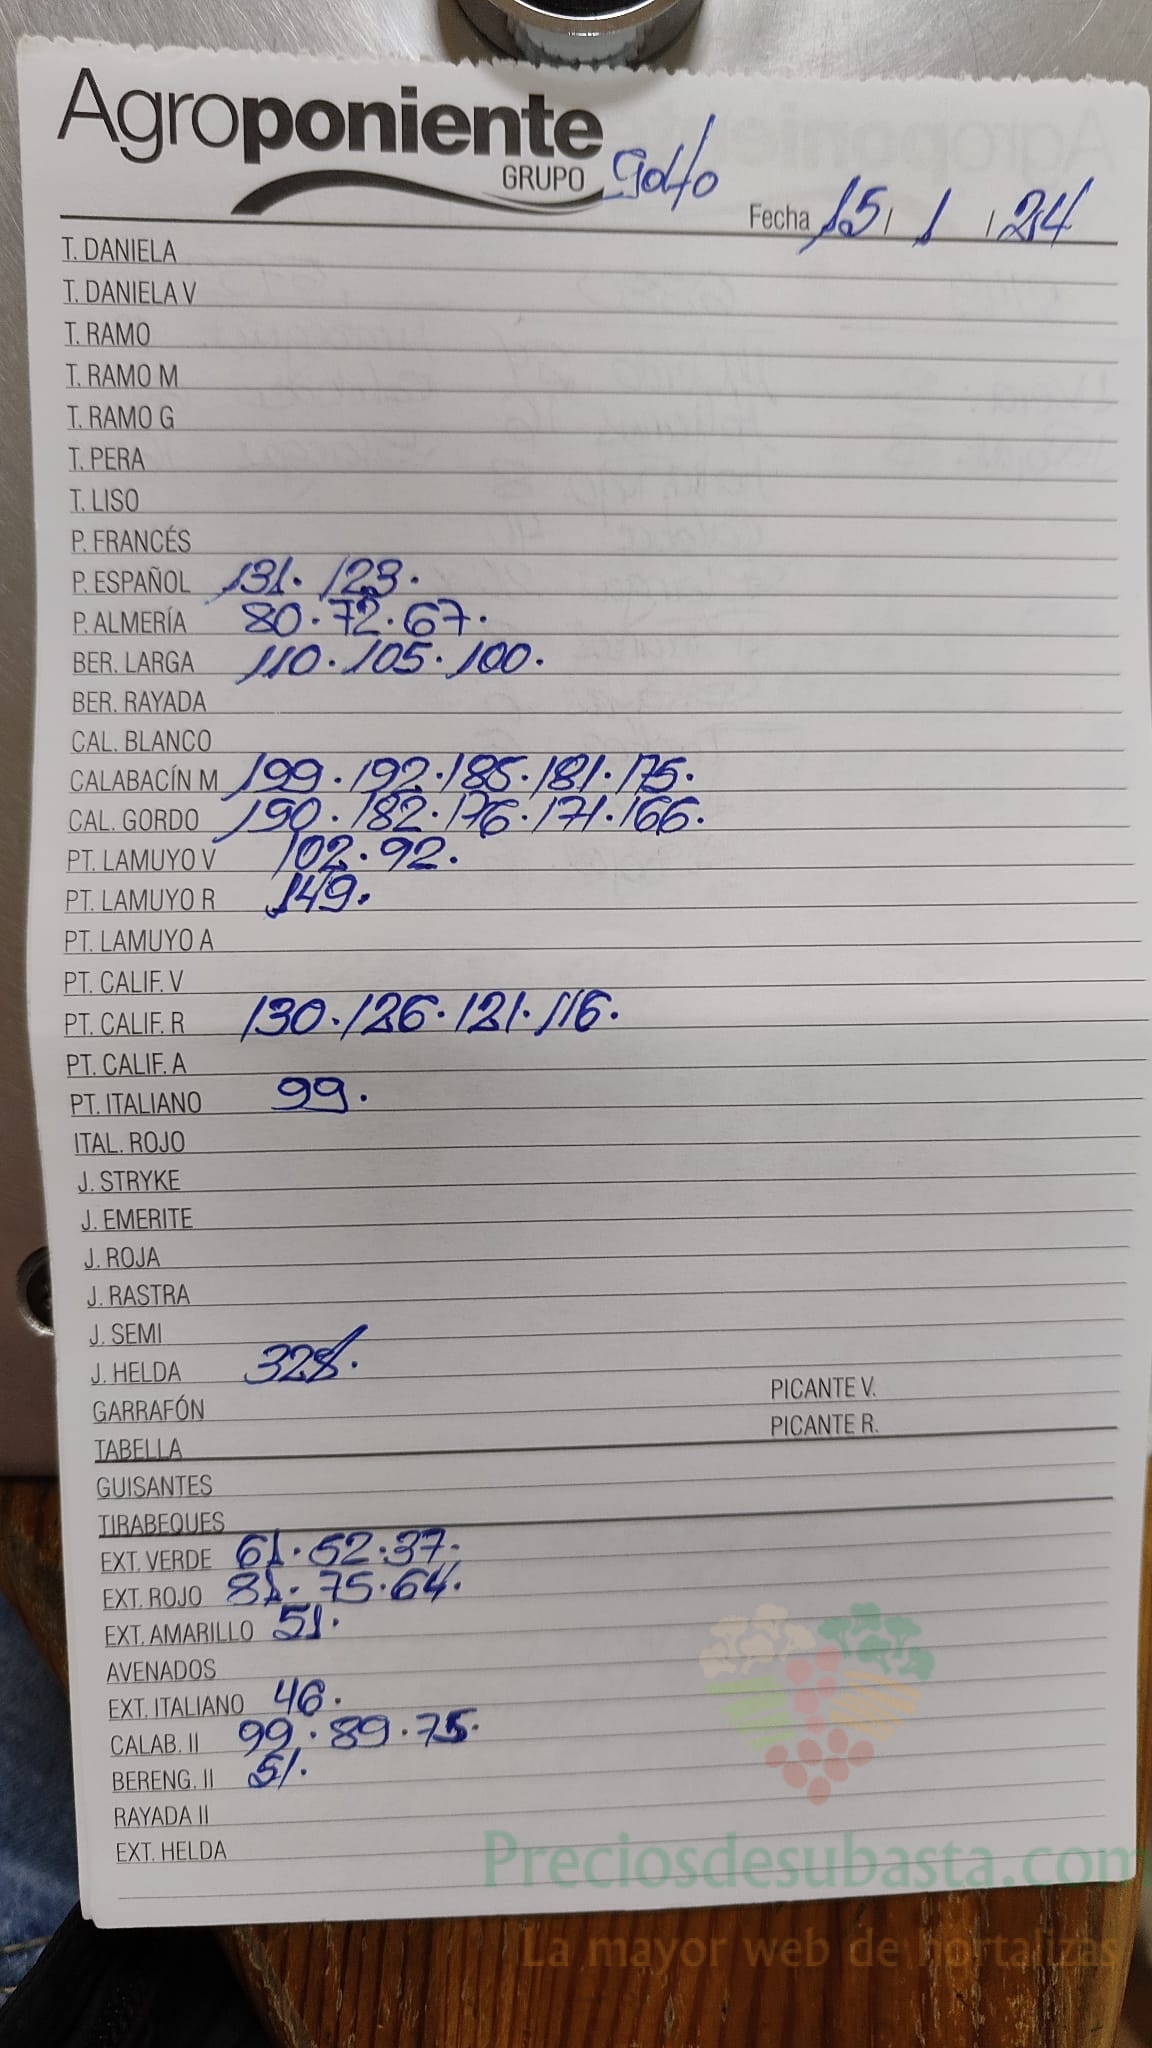 Agroponiente
GRUPO
Golfo
Fecha 15 / 1 / 24
T. DANIELA
T. DANIELA V
T. RAMO
T. RAMO M
T. RAMO G
T. PERA
T. LISO
P. FRANCÉS
P. ESPAÑOL 131. 123.
P. ALMERÍA 80. 72. 67.
BER. LARGA 110. 105. 100.
BER. RAYADA
CAL. BLANCO
CALABACÍN M 199. 192. 185. 181. 175.
CAL. GORDO 190. 182. 176. 171. 166.
PT. LAMUYO V 102. 92.
PT. LAMUYO R 149.
PT. LAMUYO A
PT. CALIF. V
PT. CALIF. R 130. 126. 121. 116.
PT. CALIF. A
PT. ITALIANO 99.
ITAL. ROJO
J. STRYKE
J. EMERITE
J. ROJA
J. RASTRA
J. SEMI
J. HELDA 328.
GARRAFÓN PICANTE V.
TABELLA PICANTE R.
GUISANTES
TIRABEQUES
EXT. VERDE 61. 52. 37.
EXT. ROJO 81. 75. 64.
EXT. AMARILLO 51.
AVENADOS
EXT. ITALIANO 46.
CALAB. II 99. 89. 75.
BERENG. II 51.
RAYADA II
EXT. HELDA
Preciosdesubasta.com
La mayor web de hortalizas